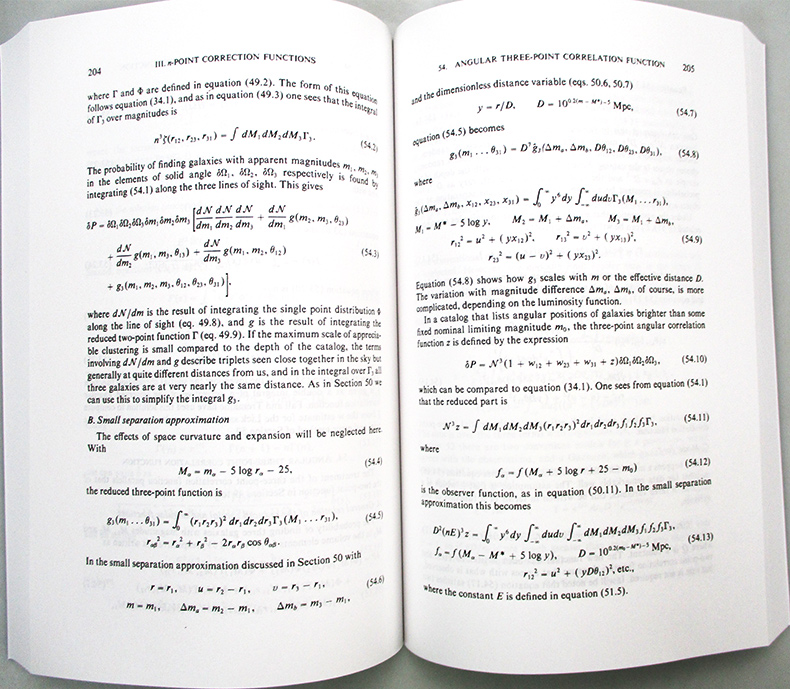 204
III. n-POINT CORRECTION FUNCTIONS
where Γ and Φ are defined in equation (49.2). The form of this equation
follows equation (34.1), and as in equation (49.3) one sees that the integral
of Γ₃ over magnitudes is
n³ζ(r₁₂, r₂₃, r₃₁) = ∫ dM₁dM₂dM₃Γ₃. (54.2)
The probability of finding galaxies with apparent magnitudes m₁, m₂, m₃
in the elements of solid angle δΩ₁, δΩ₂, δΩ₃ respectively is found by
integrating (54.1) along the three lines of sight. This gives
δP = δΩ₁δΩ₂δΩ₃δm₁δm₂δm₃ [d𝒩/dm₁ d𝒩/dm₂ d𝒩/dm₃ + d𝒩/dm₁ g(m₂, m₃, θ₂₃)
+ d𝒩/dm₂ g(m₁, m₃, θ₁₃) + d𝒩/dm₃ g(m₁, m₂, θ₁₂) (54.3)
+ g₃(m₁, m₂, m₃, θ₁₂, θ₂₃, θ₃₁)],
where d𝒩/dm is the result of integrating the single point distribution Φ
along the line of sight (eq. 49.8), and g is the result of integrating the
reduced two-point function Γ (eq. 49.9). If the maximum scale of apprecia-
ble clustering is small compared to the depth of the catalog, the terms
involving d𝒩/dm and g describe triplets seen close together in the sky but
generally at quite different distances from us, and in the integral over Γ₃ all
three galaxies are at very nearly the same distance. As in Section 50 we
can use this to simplify the integral g₃.
B. Small separation approximation
The effects of space curvature and expansion will be neglected here.
With
Mα = mα − 5 log rα − 25, (54.4)
the reduced three-point function is
g₃(m₁ . . . θ₃₁) = ∫₀^∞ (r₁r₂r₃)² dr₁dr₂dr₃Γ₃(M₁ . . . r₃₁), (54.5)
rαβ² = rα² + rβ² − 2rαrβ cos θαβ.
In the small separation approximation discussed in Section 50 with
r = r₁, u = r₂ − r₁, υ = r₃ − r₁, (54.6)
m = m₁, Δmₐ = m₂ − m₁, Δm_b = m₃ − m₁,
54. ANGULAR THREE-POINT CORRELATION FUNCTION
205
and the dimensionless distance variable (eqs. 50.6, 50.7)
y = r/D, D = 10^0.2(m − M*)−5 Mpc, (54.7)
equation (54.5) becomes
g₃(m₁ . . . θ₃₁) = D⁵ĝ₃(Δmₐ, Δm_b, Dθ₁₂, Dθ₂₃, Dθ₃₁), (54.8)
where
ĝ₃(Δmₐ, Δm_b, x₁₂, x₂₃, x₃₁) = ∫₀^∞ y⁶dy ∫₋∞^∞ dudυΓ₃(M₁ . . . r₃₁),
M₁ = M* − 5 log y, M₂ = M₁ + Δmₐ, M₃ = M₁ + Δm_b,
r₁₂² = u² + (yx₁₂)², r₁₃² = υ² + (yx₁₃)², (54.9)
r₂₃² = (u − υ)² + (yx₂₃)².
Equation (54.8) shows how g₃ scales with m or the effective distance D.
The variation with magnitude difference Δmₐ, Δm_b, of course, is more
complicated, depending on the luminosity function.
In a catalog that lists angular positions of galaxies brighter than some
fixed nominal limiting magnitude m₀, the three-point angular correlation
function z is defined by the expression
δP = 𝒩³(1 + w₁₂ + w₂₃ + w₃₁ + z)δΩ₁δΩ₂δΩ₃, (54.10)
which can be compared to equation (34.1). One sees from equation (54.1)
that the reduced part is
𝒩³z = ∫ dM₁dM₂dM₃(r₁r₂r₃)²dr₁dr₂dr₃f₁f₂f₃Γ₃, (54.11)
where
fα = f(Mα + 5 log r + 25 − m₀) (54.12)
is the observer function, as in equation (50.11). In the small separation
approximation this becomes
D²(nE)³z = ∫₀^∞ y⁶dy ∫₋∞^∞ dudυ ∫₋∞^∞ dM₁dM₂dM₃f₁f₂f₃Γ₃,
fα = f(Mα − M* + 5 log y), D = 10^0.2(m₀−M*)−5 Mpc, (54.13)
r₁₂² = u² + (yDθ₁₂)², etc.,
where the constant E is defined in equation (51.5).